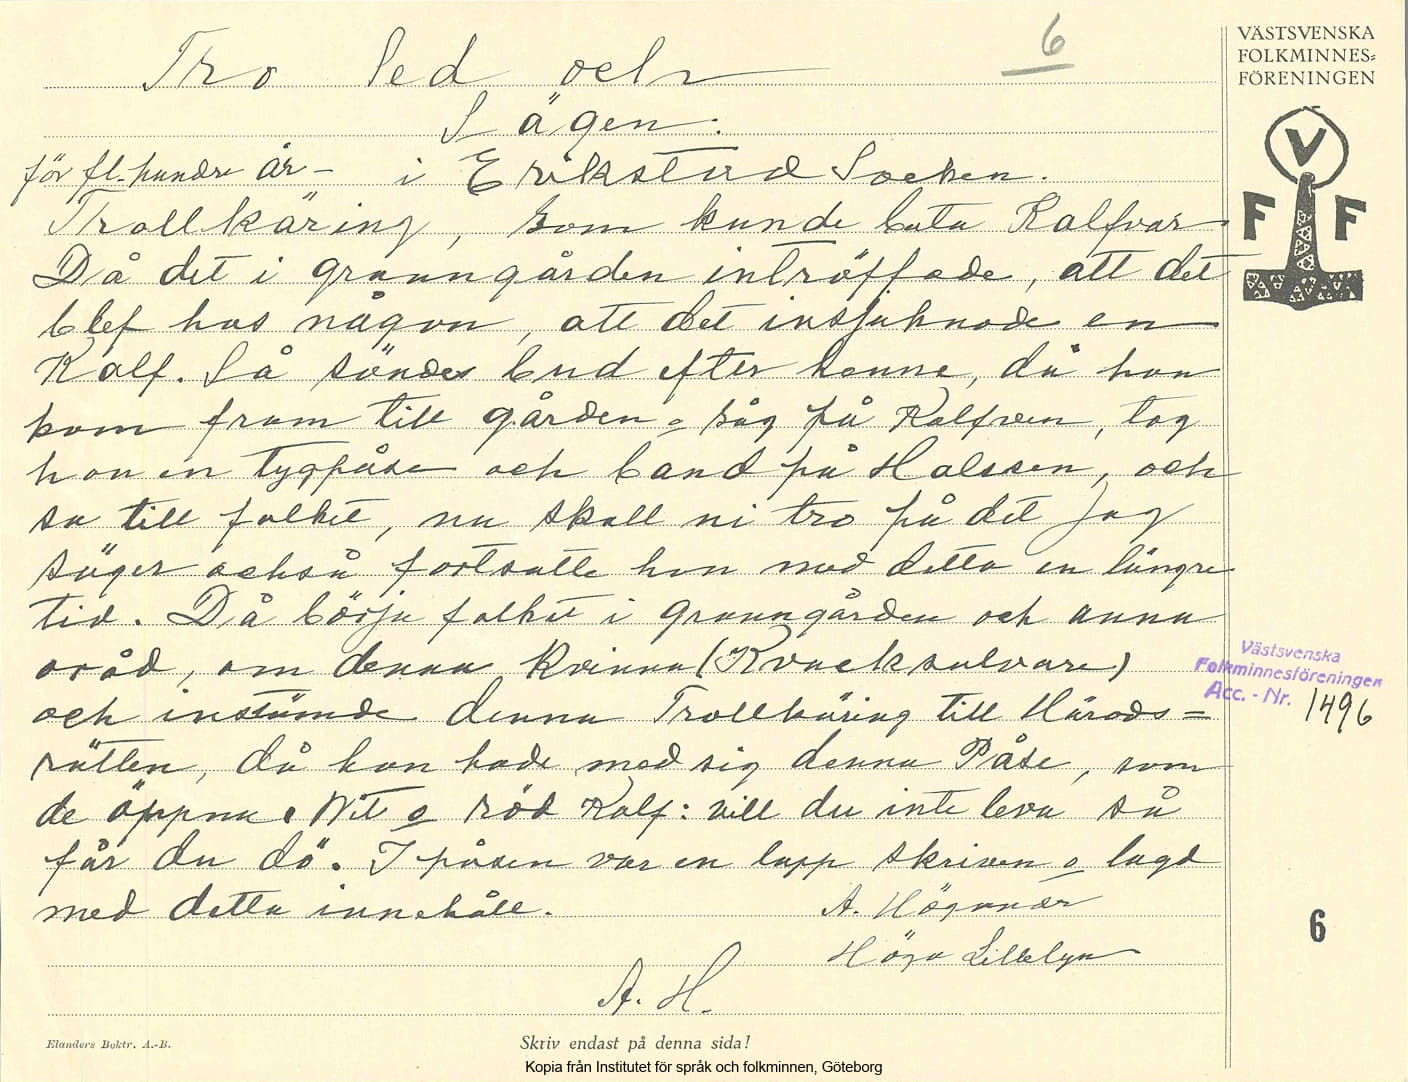 6
VÄSTSVENSKA
FOLKMINNES=
FÖRENINGEN
V
F F
Tro Sed och
Sägen.
för fl. hundre år – i Erikstad Socken.
Trollkäring, som kunde bota Kalfvar.
Då det i granngården inträffade, att det
blef hos någon, att det insjuknade en
Kalf. Så sändes bud efter henne, då hon
kom fram till gården o såg på Kalfven, tog
hon en tygpåse och band på Halssen, och
sa till folket, nu skall ni tro på det Jag
säger också fortsatte hon med detta en längre
tid. Då börja folket i granngården och anna
oråd, om denna kvinna (Kvacksalvare)
och instämde denna Trollkäring till Härads=
rätten, då hon hade med sig denna Påse, som
de öppna. Wit o röd Kalf: vill du inte leva så
får du dö. I påsen var en lapp skriven o lagd
med detta innehåll.
A. Högunær
Höga Lillelyn
A. H.
Västsvenska
Folkminnesföreningen
Acc. - Nr. 1496
6
Elanders Boktr. A.-B.
Skriv endast på denna sida!
Kopia från Institutet för språk och folkminnen, Göteborg